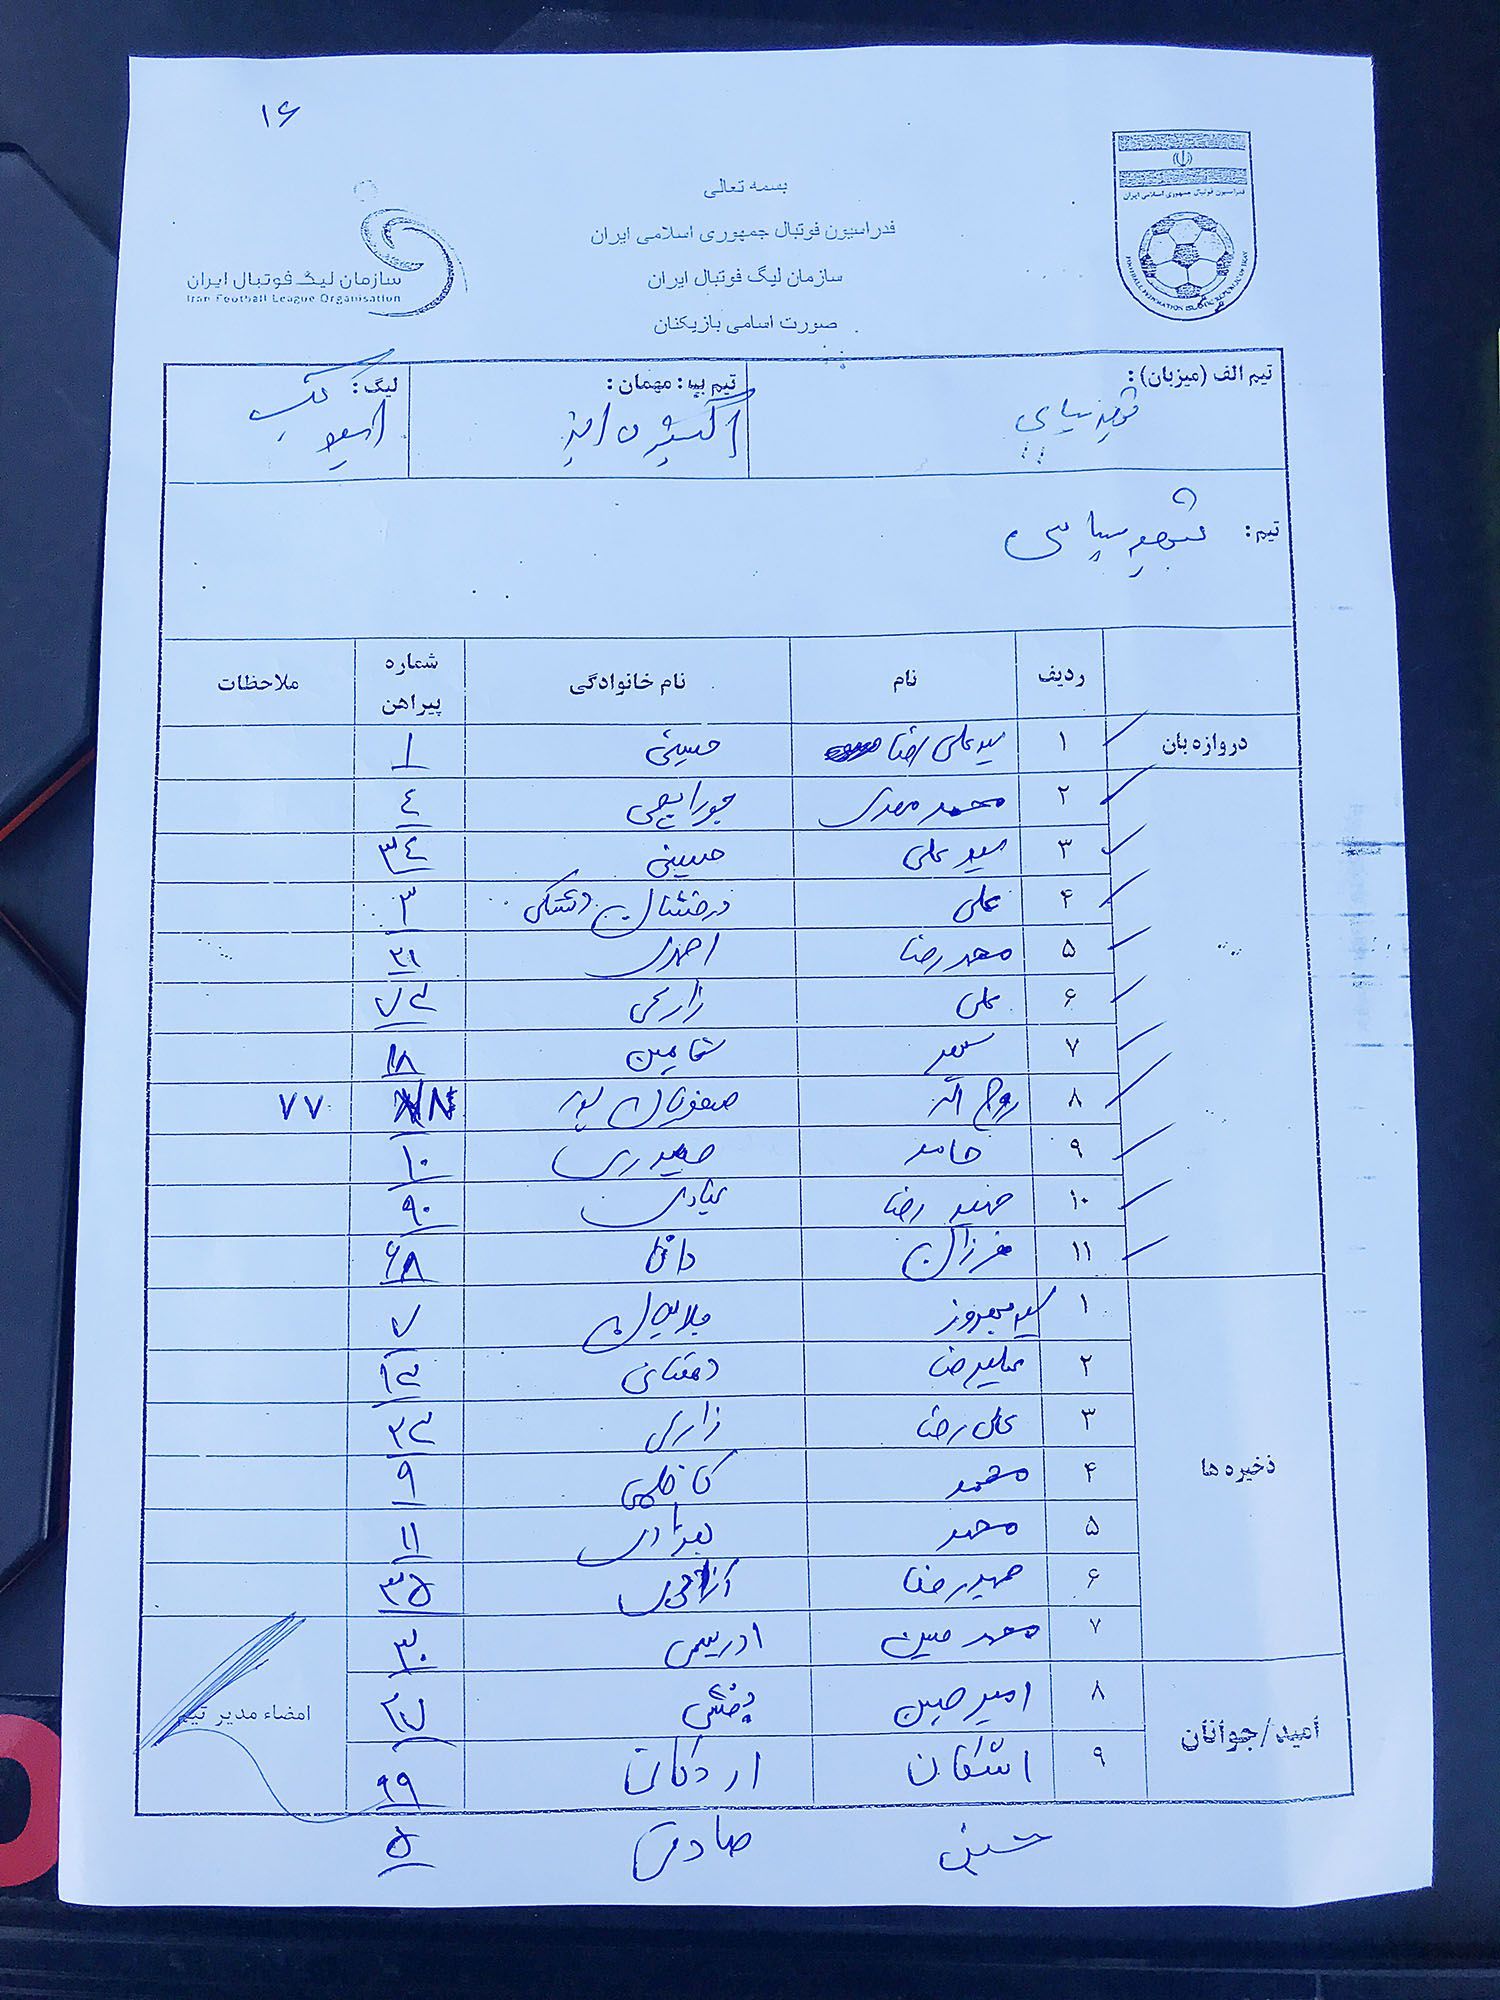 ۱۶
بسمه تعالی
فدراسیون فوتبال جمهوری اسلامی ایران
سازمان لیگ فوتبال ایران
صورت اسامی بازیکنان
سازمان لیگ فوتبال ایران
Iran Football League Organisation
فدراسیون فوتبال جمهوری اسلامی ایران
FOOTBALL FEDERATION ISLAMIC REPUBLIC OF IRAN
تیم الف (میزبان):
تیم ب: مهمان:
لیگ:
تیم:
ردیف نام نام خانوادگی شماره پیراهن ملاحظات
دروازه بان ۱ سید علی رضا حسینی ۱
۲ محمد مهدی جورابچی ۴
۳ سید علی حسینی ۳۴
۴ علی درخشان دشتکی ۳
۵ محمد رضا احمدی ۲۱
۶ علی زارعی ۷۲
۷ سعید ۱۸
۸ روح اله صفریان پور ۷۷
۹ حامد حیدری ۱۰
۱۰ حمید رضا عبادی ۹۰
۱۱ فرزان دانا ۶۸
ذخیره ها
۱ سید بهروز ۷
۲ علیرضا دهقانی ۱۲
۳ علی رضا زارعی ۲۲
۴ محمد کاظمی ۹
۵ محمد بغدادی ۱۱
۶ حمیدرضا ۳۵
۷ محمد مبین ادریسی ۳۰
امید/جوانان
۸ امیر حسین ۲۷
۹ اشکان اردکانی ۹۹
امضاء مدیر تیم
صادقی ۵